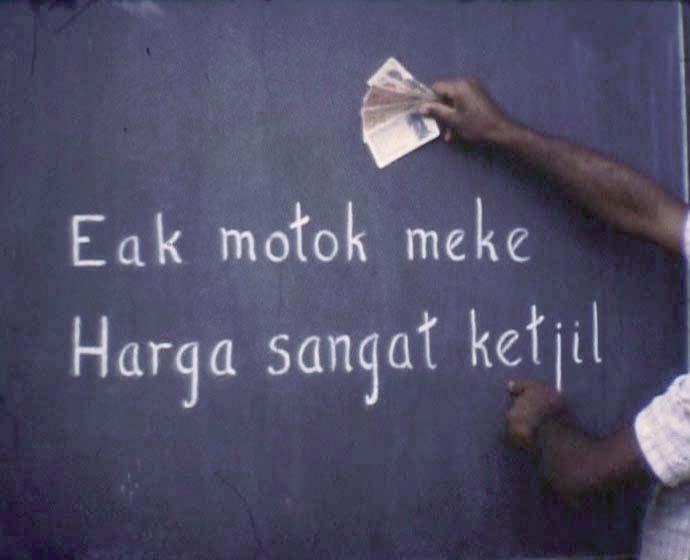 Eak motok meke
Harga sangat ketjil